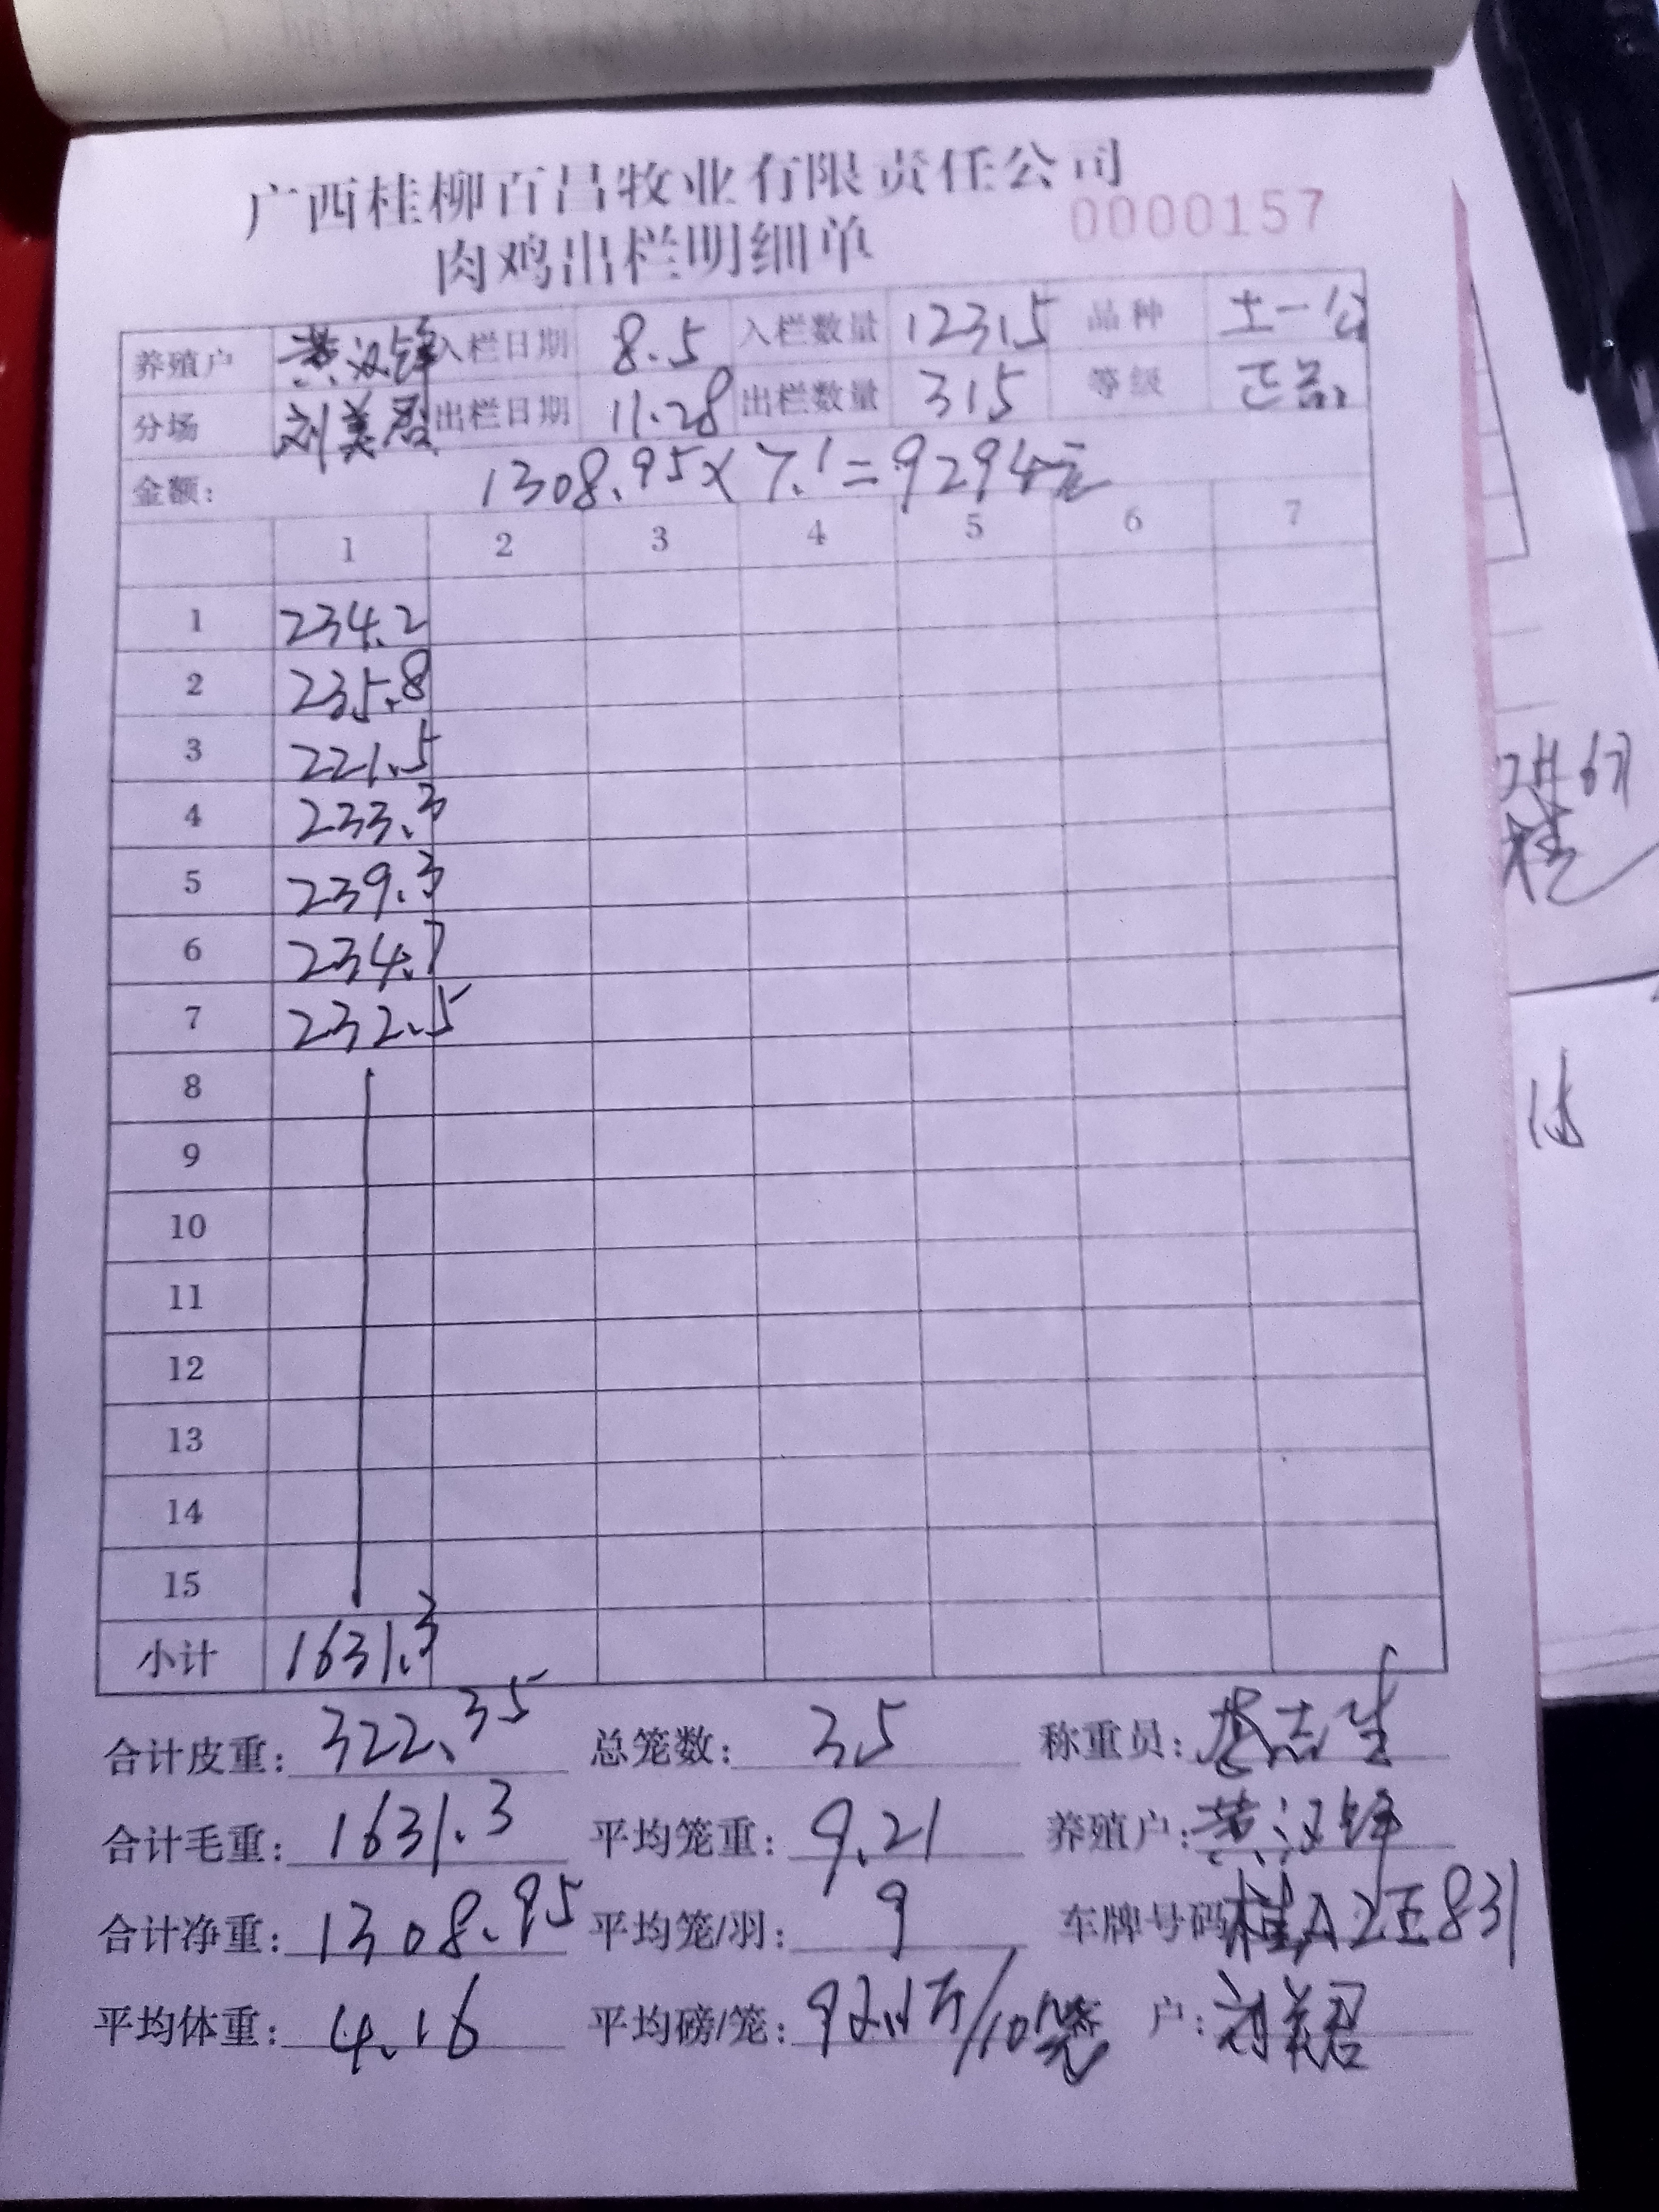 广西桂柳百昌牧业有限责任公司
0000157
肉鸡出栏明细单
养殖户 黄汉锋 入栏日期 8.5 入栏数量 12315 品种 土一公
分场 刘美君 出栏日期 11.28 出栏数量 315 等级 正品
金额: 1308.95×7.1=9294元
1 2 3 4 5 6 7
1 234.2
2 235.8
3 221.5
4 233.3
5 239.3
6 234.7
7 232.5
8
9
10
11
12
13
14
15
小计 1631.3
合计皮重: 322.35 总笼数: 35 称重员: 志生
合计毛重: 1631.3 平均笼重: 9.21 养殖户: 黄汉锋
合计净重: 1308.95 平均笼/羽: 9 车牌号码 桂A
平均体重: 4.16 平均磅/笼: 92.1斤/10笼 户: 刘美君